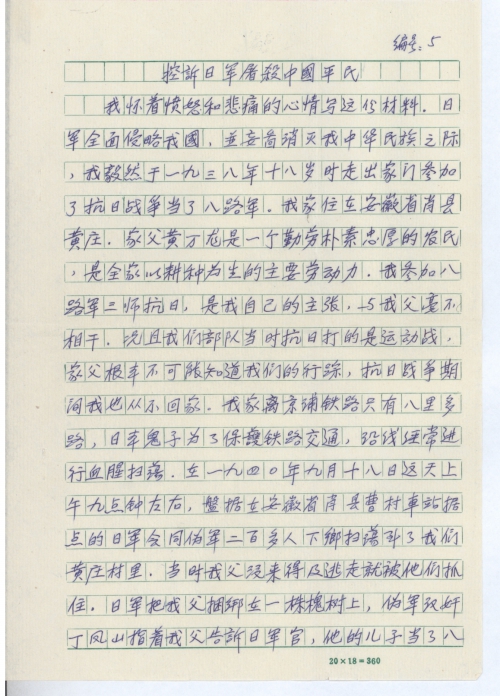 编号:5
控訴日軍屠殺中國平民
我怀着愤怒和悲痛的心情写这份材料.日
军全面侵略我國,並妄啚消灭我中华民族之际
,我毅然于一九三八年十八岁时走出家门参加
了抗日战争当了八路军.我家住在安徽省肖县
黄庄.家父黄万龙是一个勤劳朴素忠厚的农民
,是全家以耕种为生的主要劳动力.我参加八
路军三师抗日,是我自己的主张,与我父毫不
相干.况且我们部队当时抗日打的是运动战,
家父根本不可能知道我们的行踪,抗日战争期
间我也从不回家.我家离京浦铁路只有八里多
路,日本鬼子为了保護铁路交通,沿线经常进
行血腥扫荡.在一九四〇年九月十八日这天上
午九点钟左右,盤据在安徽省肖县曹村車站据
点的日军会同伪军二百多人下鄉扫荡到了我们
黄庄村里.当时我父没来得及逃走就被他们抓
住.日军把我父捆绑在一株槐树上,伪军汉奸
丁凤山指着我父告訴日軍官,他的儿子当了八
20×18=360